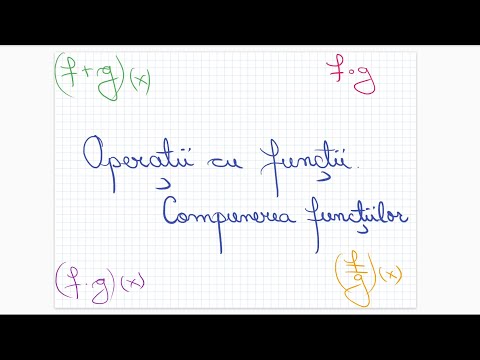 (f+g)(x)
f∘g
Operații cu funcții.
Compunerea funcțiilor
(f·g)(x)
(f/g)(x)